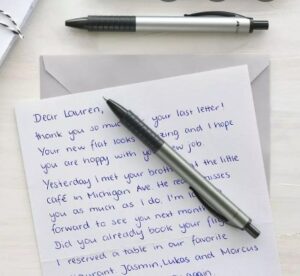 Dear Lauren,
thank you so much your last letter!
Your new flat looks zing and I hope
you are happy with yo ew job.
Yesterday I met your broth t the little
café in Michigan Ave. He rea isses
you as much as I do. I'm lo
forward to see you next mont
Did you already book your fligh
I reserved a table in our favorite
urant Jasmin, Lukas and Marcus
again.